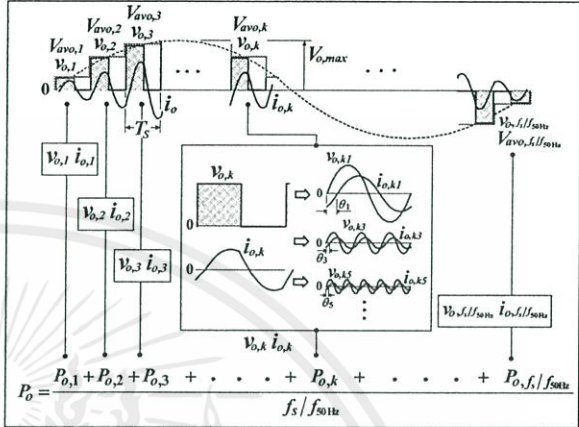 V_avo,1 V_avo,2 V_avo,3 V_avo,k V_o,max
v_o,1 v_o,2 v_o,3 v_o,k
0 i_o i_o,k
T_S
v_o,f_s/f_50Hz
V_avo,f_s/f_50Hz
v_o,1 i_o,1
v_o,2 i_o,2
v_o,3 i_o,3
v_o,k
0
i_o,k
0
v_o,k1 i_o,k1
0
θ_1
v_o,k3 i_o,k3
0
θ_3
v_o,k5 i_o,k5
0
θ_5
v_o,f_s/f_50Hz i_o,f_s/f_50Hz
v_o,k i_o,k
P_o = P_o,1 + P_o,2 + P_o,3 + · · · + P_o,k + · · · + P_o,f_s/f_50Hz
f_S / f_50Hz